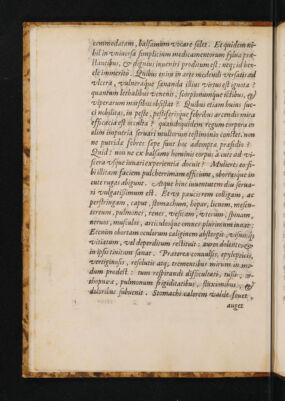 commodatam, balsamum vocare solet. Et quidem ni-
hil in vniuersa simplicium medicamentorum sylua præ-
stantius, & dignius inueniri proditum est: neq; id her-
cle immeritò. Quibus enim in arte medendi versatis ad
vlcera, vulneraque sananda illius virtus est ignota?
quantum lethalibus venenis, scorpionumque ictibus, &
viperarum morsibus obsistat? Quibus etiam huius suc-
ci nobilitas, in peste, pestiferisque febribus arcendis mira
efficacia est incõta? quandoquidem regum corpora in
olim imperia seruari multorum testimonio constet, non
ne putrida febre sæpe sunt hoc adempta præsidio?
Quid? non ne ex balsamo hominis corpus à cute ad vi-
scera vsque iuuari experientia docuit? Mulieres
bi illitam faciem pulcherrimam efficiunt, obortasque in
cute rugas abigunt. Atque hinc inuentum diu serua-
ta vulgatissimum est. Et vt paucis rem colligam, ac
perstringam, caput, stomachum, hepar, lienem, mesen-
terium, pulmones, renes, vesicam, vterum, spinam,
neruos, musculos, articulosque omnes plurimum iuuat:
Etenim obortam oculorum caliginem abstergit, visumq;
vitiatum, vel deperditum restituit: aurem dolentem &
in ipso tinnitum sanat. Præterea conuulsis, epylepticis,
vertiginosis, resolutis atq; trementibus mirum in mo-
dum prodest: tum respirandi difficultati, tussi,
pulmonum frigiditatibus, fluxionibus, &
doloribus subuenit. Stomachi calorem valde fouet,
auget